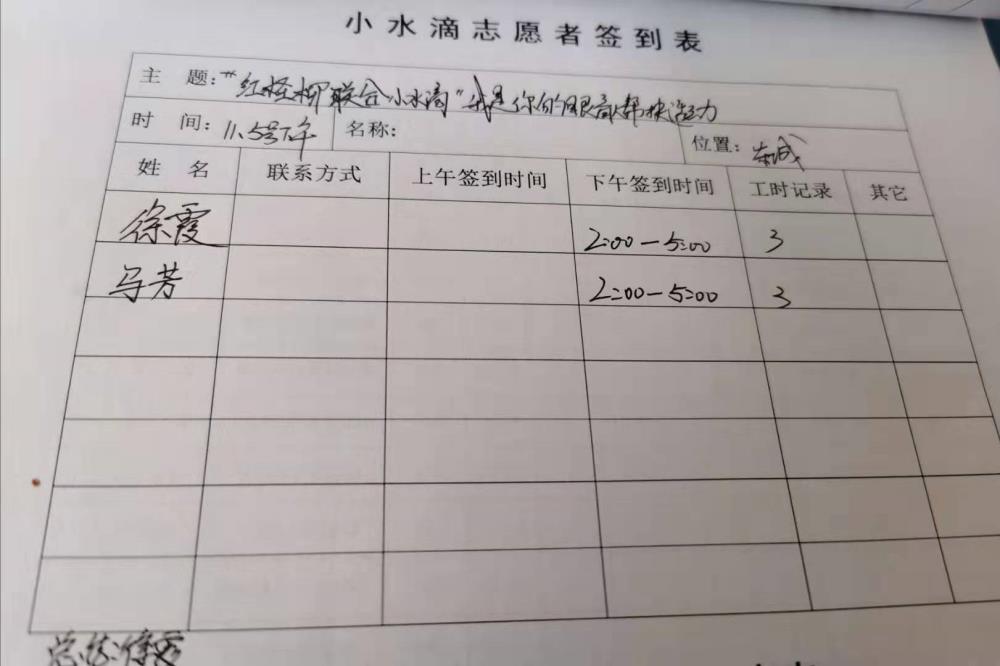 小水滴志愿者签到表
主 题："红柽柳联合小水滴"我是你的眼 帮扶活动
时 间：11.5号下午 名称： 位置：东城
姓 名 联系方式 上午签到时间 下午签到时间 工时记录 其它
徐霞 2:00—5:00 3
马芳 2:00—5:00 3
总结:徐霞